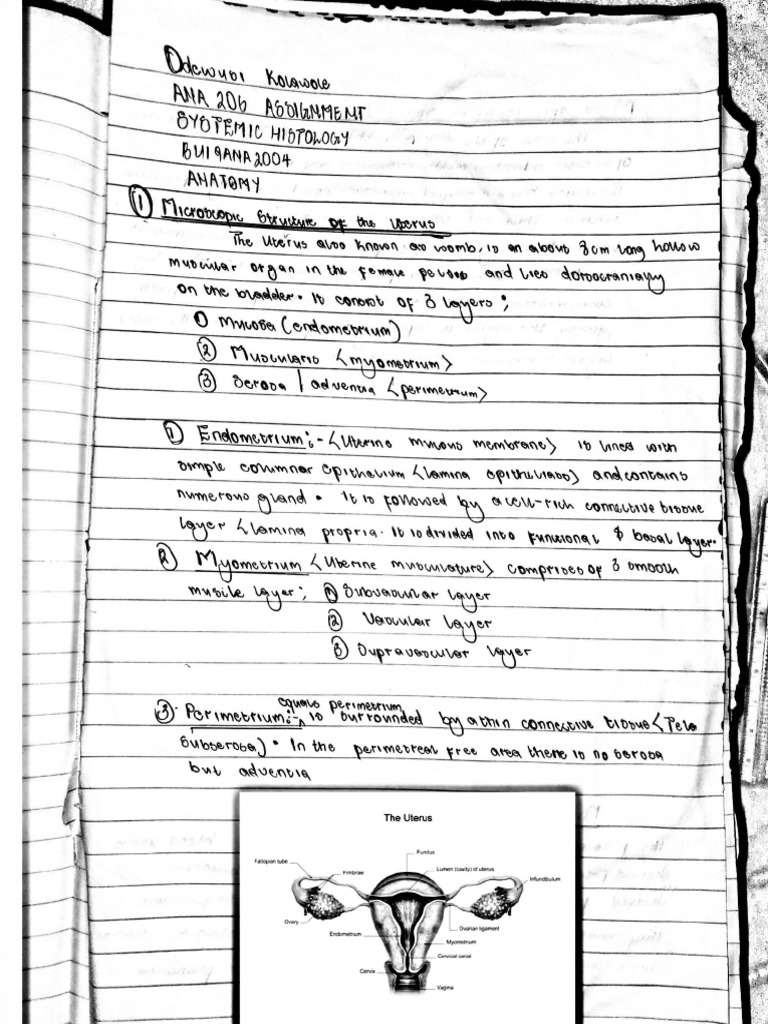 Odewusi Kolawole
ANA 206 ASSIGNMENT
SYSTEMIC HISTOLOGY
BU19ANA2004
ANATOMY
① Microscopic Structure of the Uterus
The Uterus also known as womb, is an about 8cm long hollow
muscular organ in the female pelvis and lies dorsocranially
on the bladder. It consist of 3 layers;
① Mucosa (endometrium)
② Muscularis <myometrium>
③ Serosa / adventia <perimetrium>
① Endometrium:- <Uterine mucous membrane> is lined with
simple columnar epithelium <lamina epithelialis> and contains
numerous gland. It is followed by a cell-rich connective tissue
layer <lamina propria. It is divided into functional & basal layer.
② Myometrium <Uterine musculature> comprises of 3 smooth
muscle layer; ① Subvascular layer
② Vascular layer
③ Supravascular layer
equals perimetrium
③ Perimetrium:- is surrounded by a thin connective tissue <Tela
Subserosa). In the perimetreal free area there is no serosa
but adventia
The Uterus
Fundus
Fallopian tube
Fimbriae
Lumen (cavity) of uterus
Infundibulum
Ovary
Ovarian ligament
Endometrium
Myometrium
Cervical canal
Cervix
Vagina